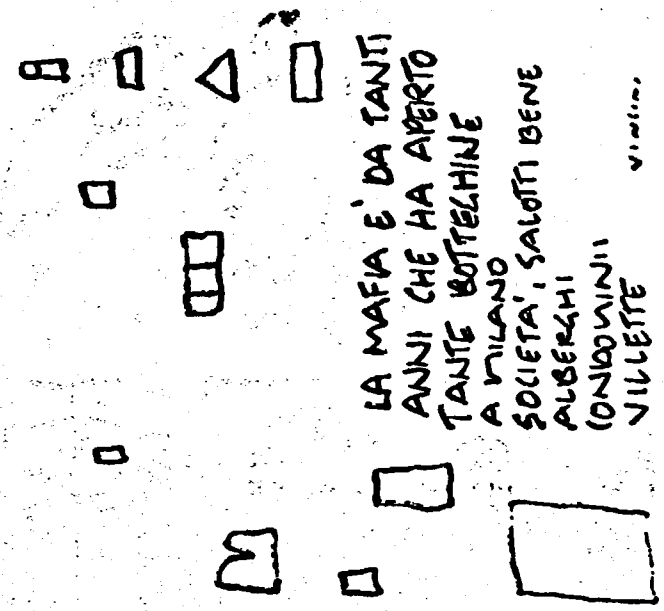 LA MAFIA E' DA TANTI
ANNI CHE HA APERTO
TANTE BOTTEGHINE
A MILANO
SOCIETA', SALOTTI BENE
ALBERGHI
CONDOMINII
VILLETTE